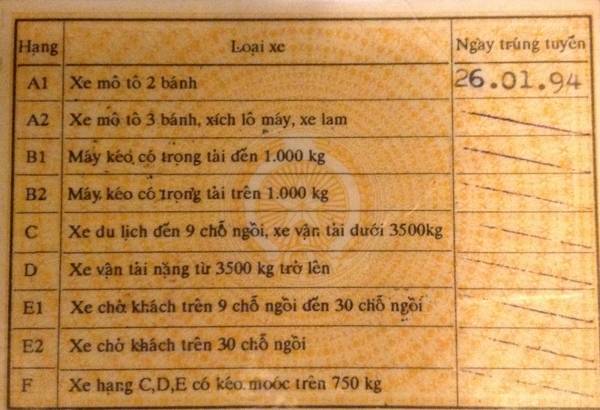 Hạng Loại xe Ngày trúng tuyển
A1 Xe mô tô 2 bánh 26.01.94
A2 Xe mô tô 3 bánh, xích lô máy, xe lam
B1 Máy kéo có trọng tải đến 1.000 kg
B2 Máy kéo có trọng tải trên 1.000 kg
C Xe du lịch đến 9 chỗ ngồi, xe vận tải dưới 3500kg
D Xe vận tải nặng từ 3500 kg trở lên
E1 Xe chở khách trên 9 chỗ ngồi đến 30 chỗ ngồi
E2 Xe chở khách trên 30 chỗ ngồi
F Xe hạng C,D,E có kéo moóc trên 750 kg